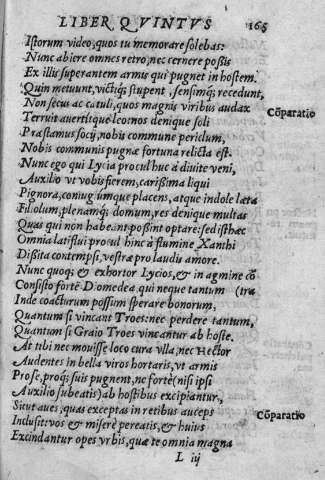 LIBER QVINTVS 165
Istorum video, quos tu memorare solebas:
Nunc abiere omnes retro, nec cernere possis
Ex illis superantem armis qui pugnet in hostem.
Quin metuunt, victiq; stupent, sensimq; recedunt,
Non secus ac catuli, quos magnis viribus audax Cōparatio
Terruit auertitque leo: nos denique soli
Præstamus socij, nobis commune periclum,
Nobis communis pugnæ fortuna relicta est.
Nunc ego qui Lycia procul huc à diuite veni,
Auxilio vt vobis fierem, carissima liqui
Pignora, coniugiumque placens, atque indole læta
Filiolum, plenamq; domum, res denique multas
Quas qui non habeant possint optare: sed isthæc
Omnia latiflui procul hinc à flumine Xanthi
Dissita contempsi, vestræ pro laudis amore.
Nunc quoq; & exhortor Lycios, & in agmine cō
Consisto forte Diomedea, qui neque tantum (tra
Inde coacturum possum sperare bonorum,
Quantum si vincant Troes: nec perdere tantum,
Quantum si Graio Troes vincantur ab hoste.
At tibi nec mouisse loco cura vlla, nec Hector
Audentes in bella viros hortaris, vt armis
Pro se, proq; suis pugnent, ne fortè (nisi ipsi
Auxilio subeatis) ab hostibus excipiantur,
Sicut aues, quas exceptas in retibus auceps Cōparatio
Inclusit: vos & miserè pereatis, & huius
Excindantur opes vrbis, quæ te omnia magna
L iij